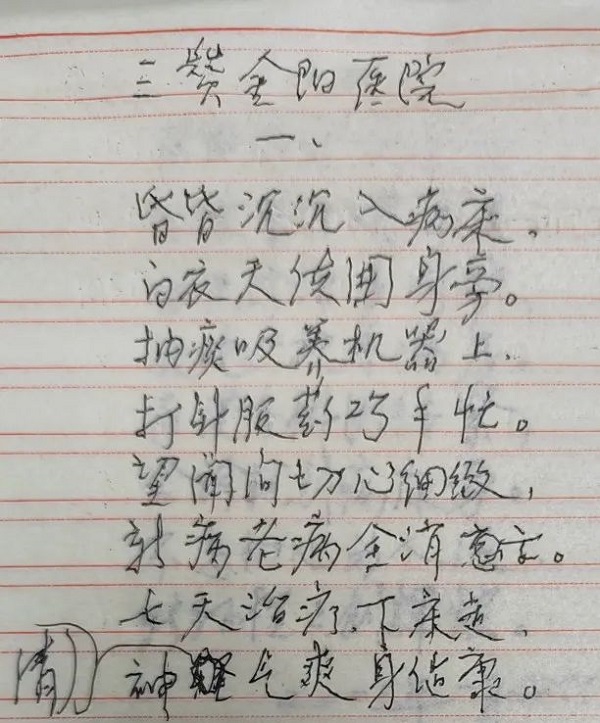 三赞金阳医院
一、
昏昏沉沉入病床，
白衣天使围身旁。
抽痰吸养机器上，
打针服药巧手忙。
望闻问切心细致，
新病老病全消
七天治疗下床走，
清
神气爽身体健康。